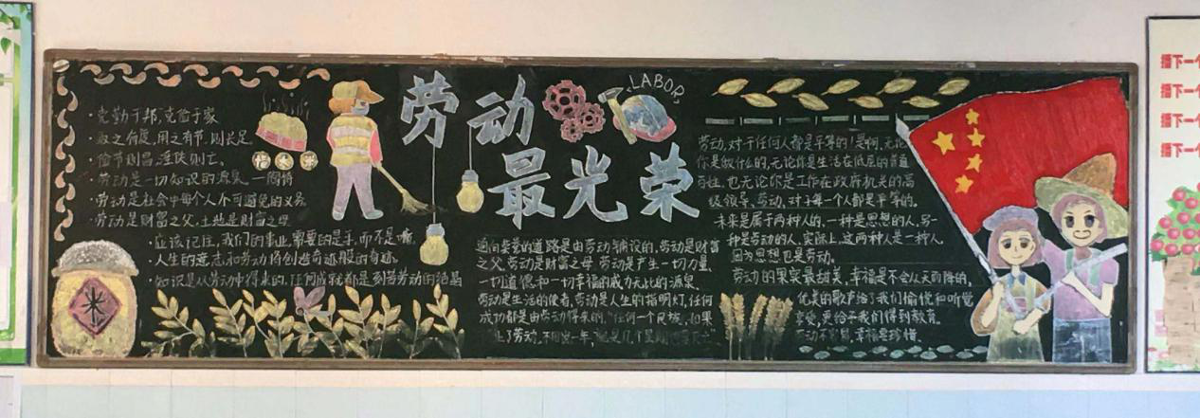 劳动
最光荣
LABOR
·克勤于邦,克俭于家
·取之有度,用之有节,则长足
·俭节则昌,淫佚则亡。
·劳动是一切知识的源泉。一陶铸
·劳动是社会中每个人不可避免的义务
·劳动是财富之父,土地是财富之母
·应该记住,我们的事业,需要的是手,而不是嘴
·人生的意志和劳动将创造奇迹般的奇迹。
·知识是从劳动中得来的,任何成就都是刻苦劳动的结晶
米
通向荣誉的道路是由劳动铺设的,劳动是财富
之父,劳动是财富之母,劳动是产生一切力量、
一切道德和一切幸福的威力无比的源泉
劳动是生活的使者,劳动是人生的指明灯,任何
成功都是由劳动得来的,任何一个民族,如果
劳动,不用说一年,就是几个星期
劳动,对于任何人都是平等的!是啊,无论
你是做什么的,无论你是生活在低层的普通
百姓,也无论你是工作在政府机关的高
级领导,劳动,对于每一个人都是平等的。
未来是属于两种人的,一种是思想的人,另
一种是劳动的人,实际上,这两种人是一种人
因为思想也是劳动。
劳动的果实最甜美,幸福是不会从天而降的,
优美的歌声给了我们愉悦和听觉
享受,更给予我们得到教育。
劳动不容易,幸福要珍惜。
播下一个
播下一个
播下一个
播下一个